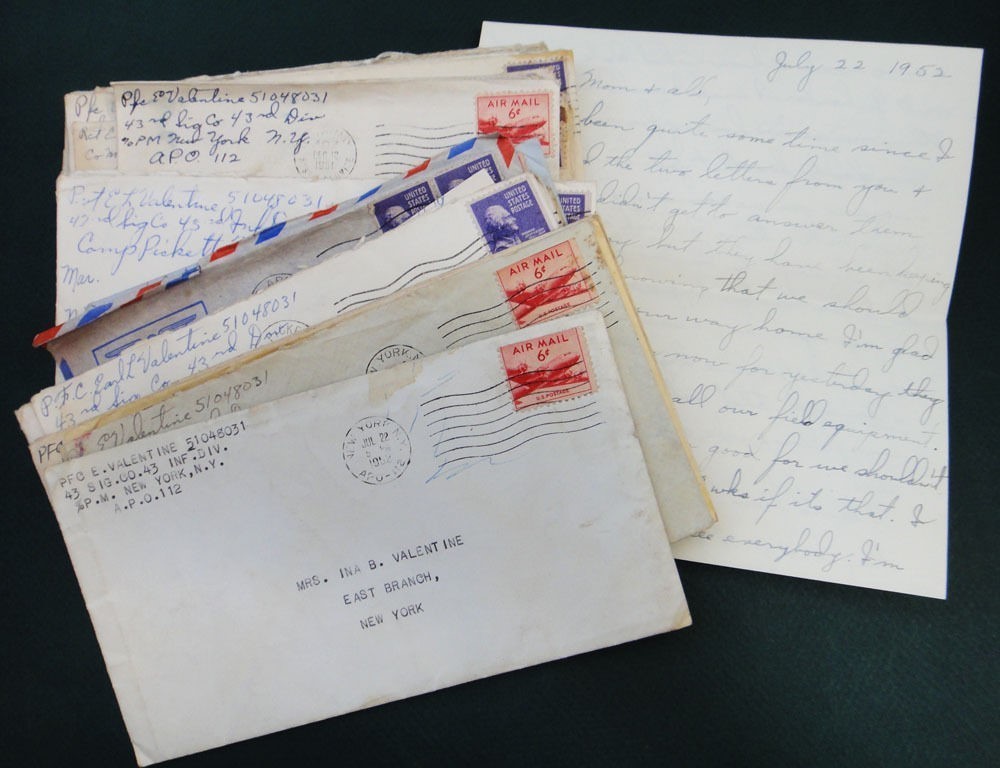 Pfc E Valentine 51048031
43rd Sig Co 43rd Div
℅ PM New York N.Y.
A.P.O. 112
AIR MAIL
6¢
Pfc
Pvt E L Valentine 51048031
43rd Sig Co 43rd Inf
Camp Pickett
UNITED STATES POSTAGE
UNITED STATES POSTAGE
UNITED STATES POSTAGE
P.F.C Earl L Valentine 51048031
43rd Sig Co. 43rd Div
AIR MAIL
6¢
U.S. POSTAGE
PFC E Valentine 51048031
AIR MAIL
6¢
U.S. POSTAGE
NEW YORK, N.Y.
JUL 22
1952
A.P.O.-112
PFC E. VALENTINE 51048031
43 SIG.CO.43 INF.DIV.
℅P.M. NEW YORK,N.Y.
A.P.O.112
MRS. INA B. VALENTINE
EAST BRANCH,
NEW YORK
July 22 1952
Mom & all,
been quite some time since I
the two letters from you &
didn't get to answer them
but they have been keeping
that we should
our way home. I'm glad
now for yesterday they
all our field equipment.
good for we shouldn't
wks if its that. I
see everybody. I'm